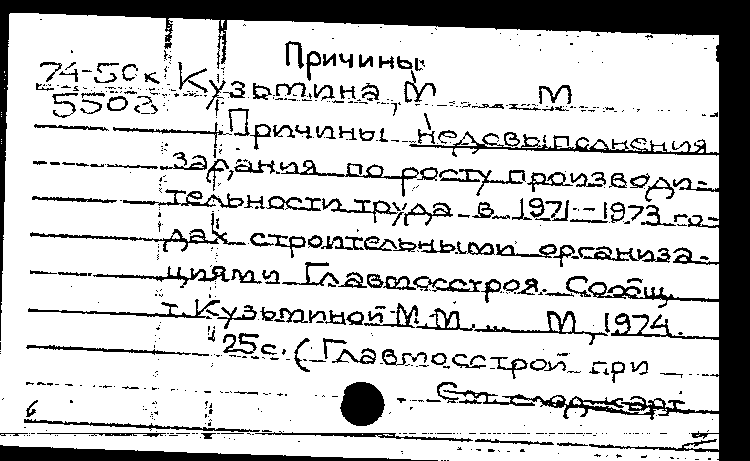 Причины
74-50к Кузьмина, М М
5503
Причины недовыполнения
задания по росту производи-
тельности труда в 1971-1973 го-
дах строительными организа-
циями Главмосстроя. Сообщ.
т. Кузьминой М.М. ... М, 1974.
25с. (Главмосстрой при
См след карт
6